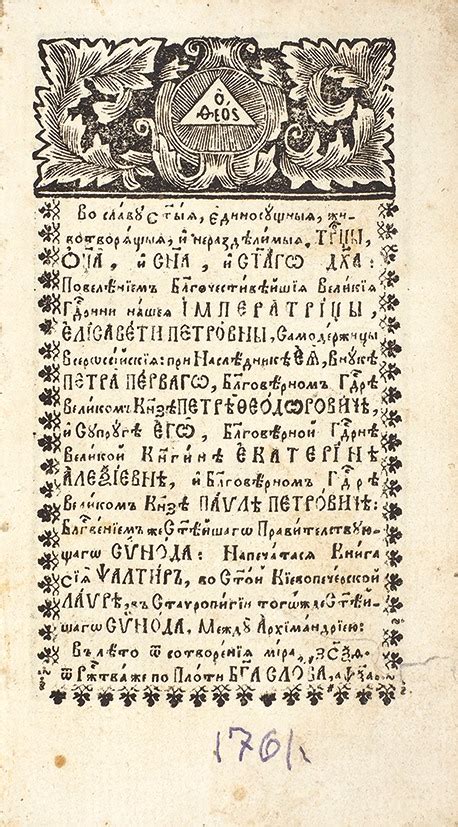 Ѻ҆ ѲЕОЅ
Во славу Ст҃ыѧ, Єдиносущныѧ, жи-
вотворѧщыѧ, и҆ нераздѣлимыѧ ТРЦ҃Ы,
Ѻ҆Ц҃А, и҆ СН҃А, и҆ СТ҃АГѠ ДХ҃А :
Повелѣнїемъ Блг҃очестивѣйшїѧ Великїѧ
Гдⷭ҇рнни нашеѧ ІМПЕРАТРІЦЫ,
ЄЛІСАВЕТИ ПЕТРОВНЫ, Самодержицы
Всерѡссїйскїѧ : при Наслѣдникѣ ЄѦ, Внукѣ
ПЕТРА ПЕРВАГѠ, Блг҃овѣрномъ Гдⷭ҇рѣ
Великомъ Кнз҃ѣ ПЕТРѢ ѲЕѺДѠРОВИЧѢ,
и҆ Супругѣ ЄГѠ, Блг҃овѣрной Гдⷭ҇рнѣ
Великой Кнг҃инѣ ЄКАТЕРІНѢ
АЛЕѮІЕВНѢ, и҆ Блг҃овѣрномъ Гдⷭ҇рѣ
Великомъ Кнз҃ѣ ПАѴЛѢ ПЕТРОВИЧѢ :
Блгⷭ҇венїемъ же Ст҃ѣйшагѡ Правителствую-
щагѡ СѴНОДА : Напечатасѧ Книга
сїѧ ѰАЛТИРЬ, во Ст҃ой Кїевопечерской
ЛАѴРѢ, въ Ставропигїи тогѡжде Ст҃ѣй-
шагѡ СѴНОДА, Междꙋ Архїмандрїею :
Въ лѣто ѿ сотворенїѧ мїра,
ѿ Ржⷭ҇тва же по Плоти БГ҃А СЛОВА,
1761.